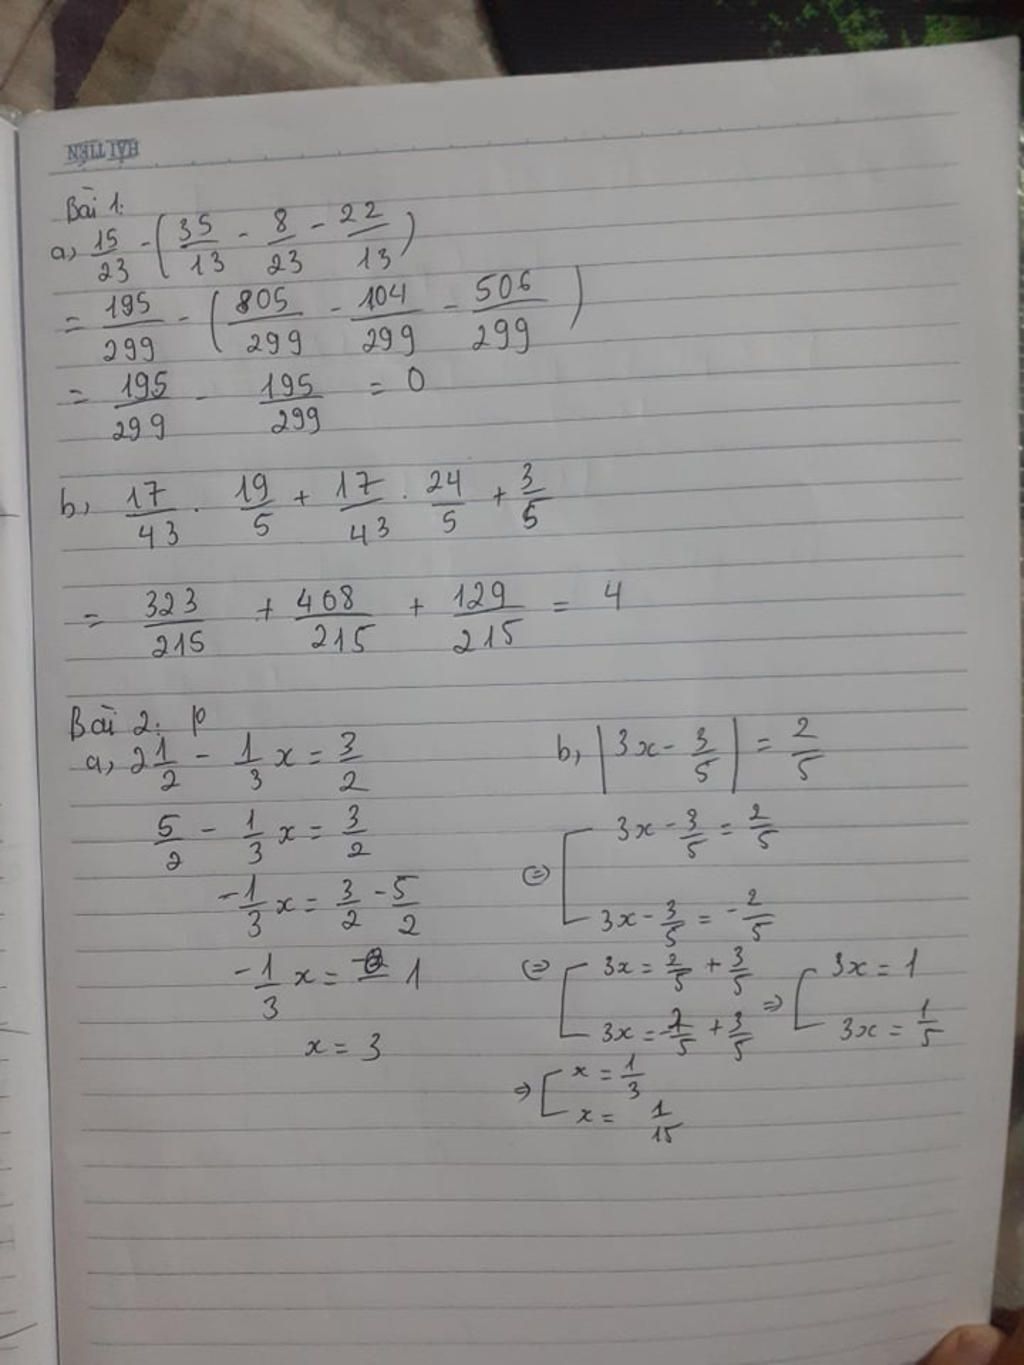 HẢI TIẾN
Bài 1:
a, 15/23 - (35/13 - 8/23 - 22/13)
= 195/299 - (805/299 - 104/299 - 506/299)
= 195/299 - 195/299 = 0
b, 17/43 . 19/5 + 17/43 . 24/5 + 3/5
= 323/215 + 408/215 + 129/215 = 4
Bài 2:
a, 2 1/2 - 1/3 x = 3/2
5/2 - 1/3 x = 3/2
-1/3 x = 3/2 - 5/2
-1/3 x = - 1
x = 3
b, |3x - 3/5| = 2/5
⇔ [ 3x - 3/5 = 2/5
3x - 3/5 = -2/5
⇔ [ 3x = 2/5 + 3/5
3x = -2/5 + 3/5
⇒ [ 3x = 1
3x = 1/5
⇒ [ x = 1/3
x = 1/15